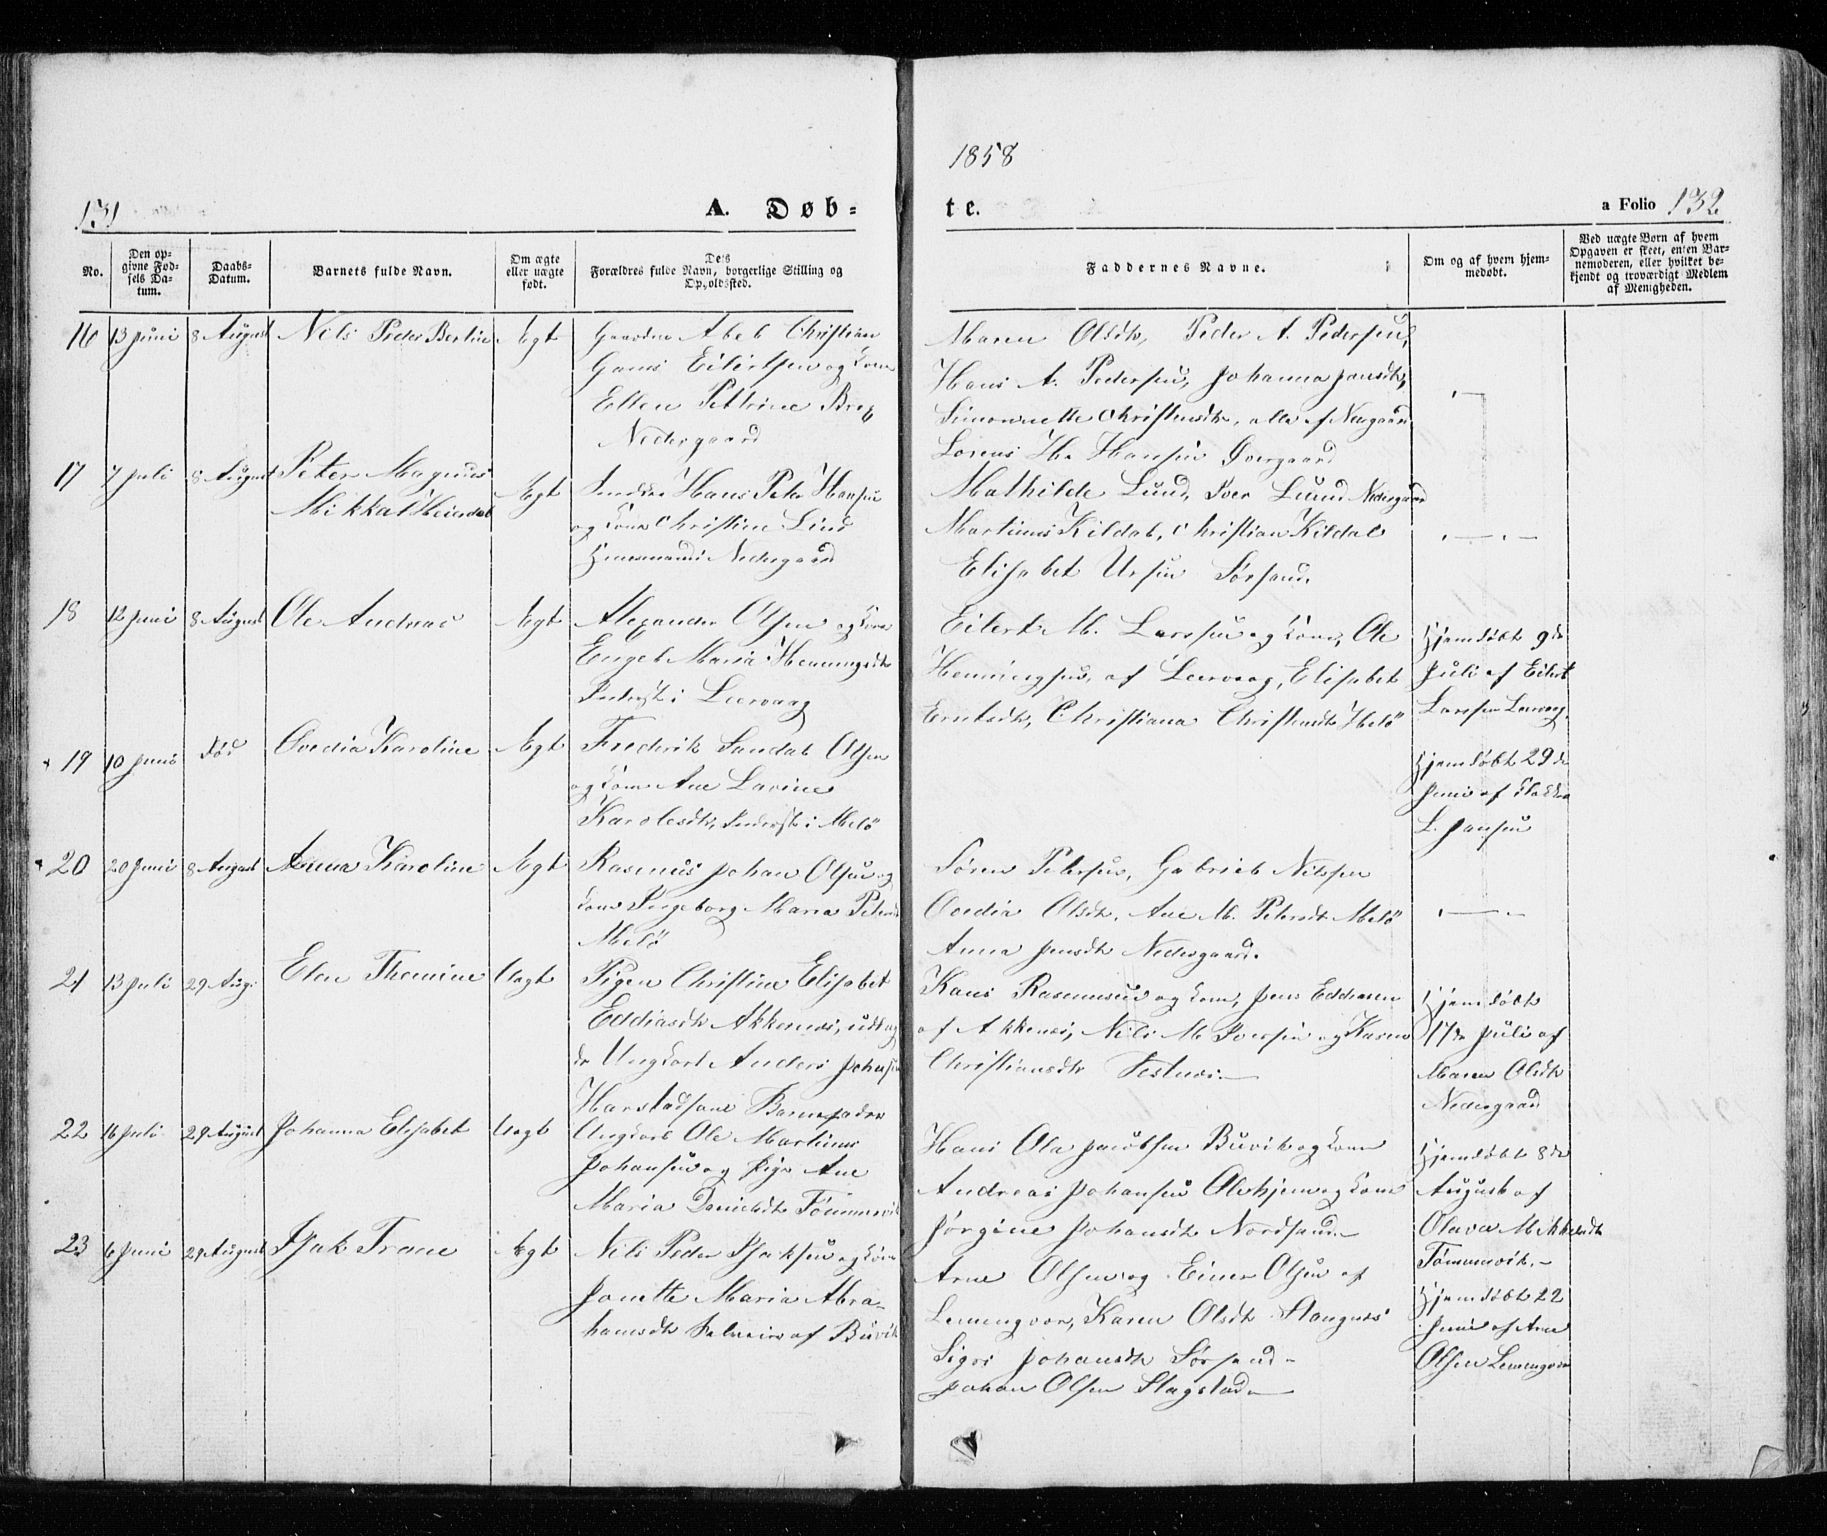 1858
131
A. Døb-
te.
a Folio 132
No.
Den op-
givne Fød-
sels Da-
tum.
Daabs-
Datum.
Barnets fulde Navn.
Om ægte
eller uægte
født.
Dets
Forældres fulde Navn, borgerlige Stilling og
Opholdssted.
Faddernes Navne.
Om og af hvem hjem-
medøbt.
Ved uægte Børn af hvem
Opgaven er skeet, enten Bar-
nemoderen, eller hvilket be-
kjendt og troværdigt Medlem
af Menigheden.
16 13 Juni 8 August Nils Peder Berlin Ægt
Christian
Eilertsen og Kone
Ellen Petrine
Nedergaard
Maren Olsdtr, Peder A. Pedersen,
Hans A. Pedersen, Johanna Jonsdtr,
Simonette Christensdtr, alle af Nergaard
Lorens Hs Hansen Øvergaard
17 7 Juli 8 August Peter Magnus
Mikkal Heierdal Ægt
Hans Peter Hansen
og Kone Christine Lind
Nedergaard
Mathilde Lund, Iver Lund Nedergaard
Martinus Kildal, Christian Kildal
Elisabet Ursin Sørsand.
18 12 Juni 8 August Ole Andreas Ægt
Alexander Olsen og Kone
Engel Maria Henningsdtr
Inderst i Leervaag
Eilert M. Larssen og Kone, Ole
Henningsen, af Leervaag, Elisabet
Erntsdtr, Christiana Christensdtr Melö
Hjemdøbt 9de
Juli af Eilert
Larssen Leervag.
19 10 Juni død Ovedia Karoline Ægt
Frederik Sandal Olsen
og Kone Ane Lavine
Karolesdtr, Inderst i Melö
Hjemdøbt 29de
Juni af Klokker
L. Jansen
20 20 Juni 8 August Anna Karoline Ægt
Rasmus Johan Olsen og
Kone Ingeborg Maria Petersd
Melö
Sören Petersen, Gabriel Nilssen
Ovedia Olsdtr, Ane M. Petersdtr Melö
Anna Jensdtr Nedergaard.
21 13 Juli 29 Aug. Elen Thomine Uægt
Pigen Christine Elisabet
Eddiasdtr Akkenæs, udlag
de Ungkarl Anders Johnsen
Harstadsand Barnefader
Hans Rasmussen og Kone, Jens Eddiasen
af Akkenæs, Nils M. Iversen og Karen
Christiansdtr
Hjemdøbt
17de Juli af
Maren Olsdtr
Nedergaard
22 16 Juli 29 August Johanna Elisabet Uægt
Ungkarl Ole Martinus
Johansen og Pige Ane
Maria Danielsdtr Tömmervik
Hans Ola Jacobsen Buvik og Kone
Andreas Johansen og Kone
Jørgine Johansdtr Nordsand
Hjemdøbt 8de
August af
Olava Mikkelsdtr
Tömmervik.
23 6 Juni 29 August Isak Trane Ægt
Nils Peder Isaksen og Kone
Jonette Maria Abra-
hamsdtr Selveier af Buvik
Arne Olsen og Einer Olsen af
Lemmingvær, Karen Olsdtr Stangnæs
Sigri Johansdtr Sørsand
Johan Olsen Slagstad
Hjemdøbt 22
Juni af Arne
Olsen Lemmingvær